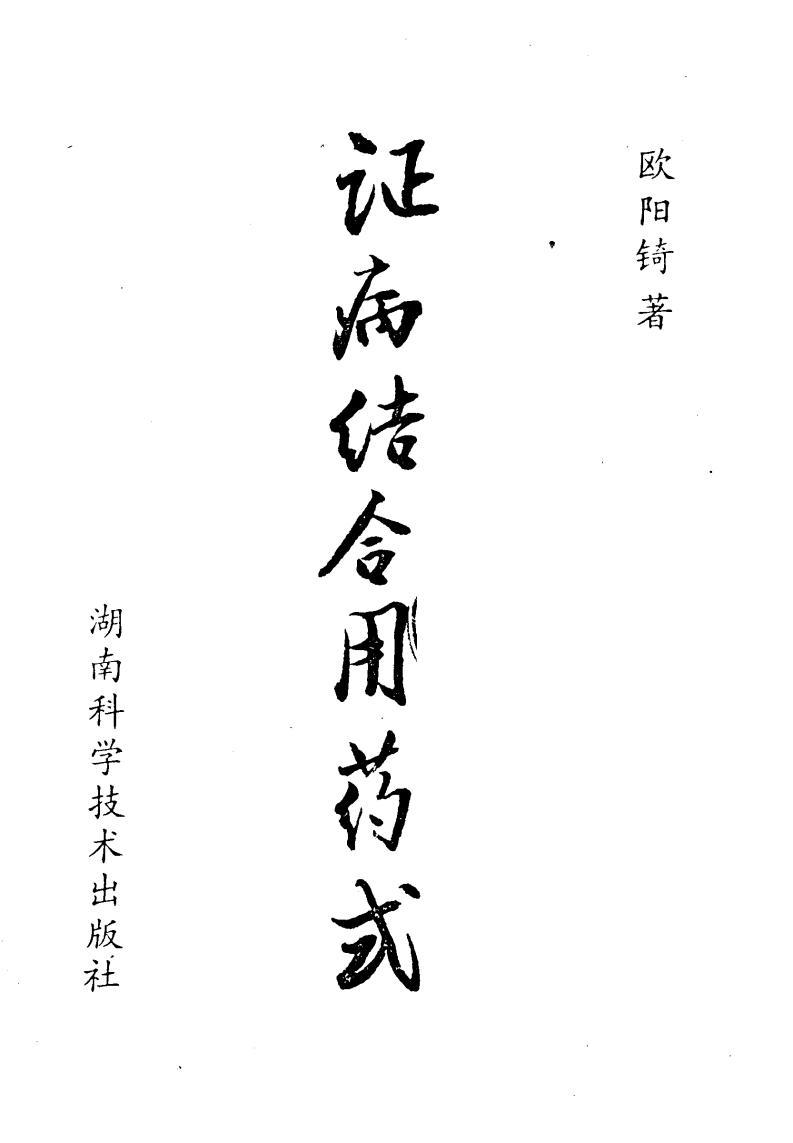 欧阳锜 著
证病结合用药式
湖南科学技术出版社